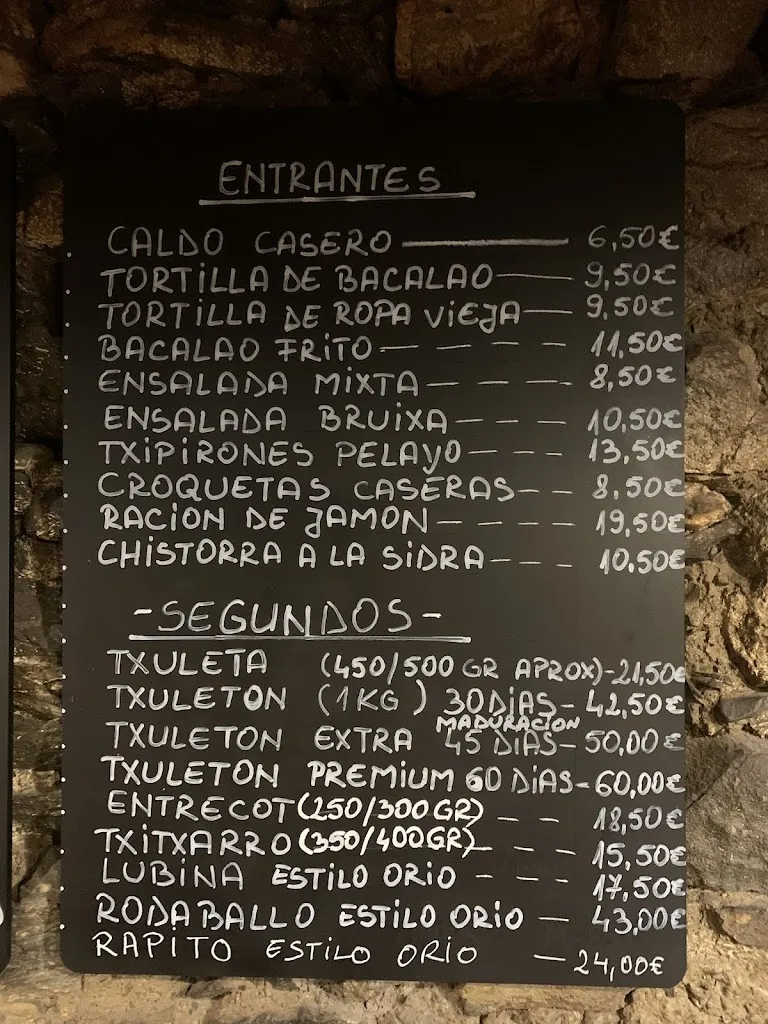 ENTRANTES
CALDO CASERO — 6,50€
TORTILLA DE BACALAO — 9,50€
TORTILLA DE ROPA VIEJA — 9,50€
BACALAO FRITO - — — — — 11,50€
ENSALADA MIXTA — — — — 8,50€
ENSALADA BRUIXA — — — — 10,50€
TXIPIRONES PELAYO — — — 13,50€
CROQUETAS CASERAS — — — 8,50€
RACION DE JAMON — — — — 19,50€
CHISTORRA A LA SIDRA — — — 10.50€
- SEGUNDOS -
TXULETA (450/500 GR APROX) - 21,50€
TXULETON (1 KG) 30 DIAS - 42,50€
MADURACION
TXULETON EXTRA 45 DIAS - 50,00€
TXULETON PREMIUM 60 DIAS - 60,00€
ENTRECOT (250/300 GR) — — 18,50€
TXITXARRO (350/400 GR) — — — 15,50€
LUBINA ESTILO ORIO - — — — 17,50€
RODABALLO ESTILO ORIO — 43,00€
RAPITO ESTILO ORIO — 24,00€